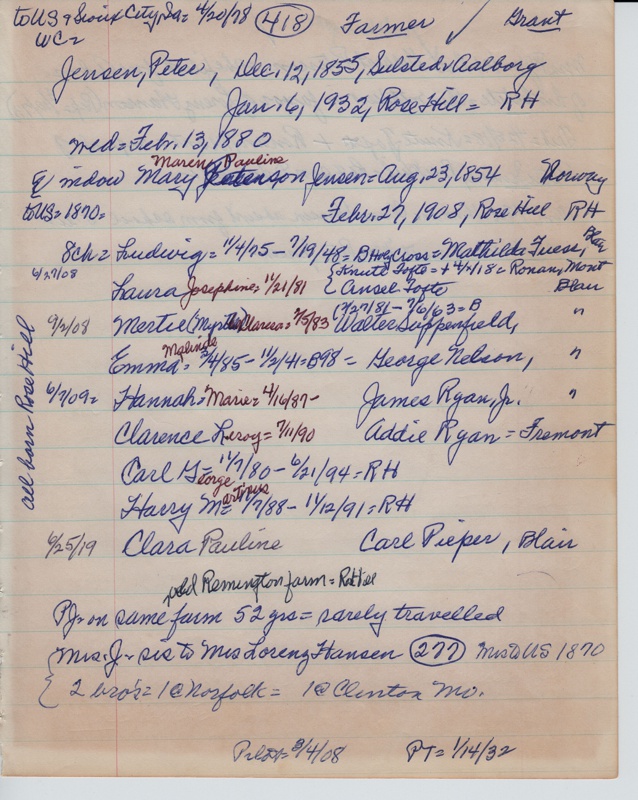 to US & Sioux City, Ia = 4/20/78 (418) Farmer ✓ Grant
WC=
Jensen, Peter, Dec. 12, 1855, Sulsted, Aalborg
Jan. 6, 1932, Rose Hill = RH
wed = Febr. 13, 1880
Marene Pauline
widow Mary Jensen = Aug. 23, 1854 Norway
to US = 1870 = Febr. 27, 1908, Rose Hill RH
8ch = Ludwig = 1/4/75 - 7/19/48 = Cross = Mathilda Fuess, Blair
6/27/08 Knute Tofte = + 4/2/18 = Ronan, Mont
Laura Josephine = 11/21/81 Ansel Tofte Blair
(7/27/81 - 7/6/63 = B
9/2/08 Mertie Clarissa = 7/5/83 Walter Suppenfield, "
Malinda
Emma = 2/4/85 - 11/2/41 = B98 = George Nelson, "
6/7/09 = Hannah = Marie = 4/16/87 - James Ryan, Jr. "
Clarence Leroy = 7/11/90 Addie Ryan = Fremont
all born Rose Hill
Carl George = 11/7/80 - 6/21/94 = RH
Harry Martinus = 1/7/88 - 11/12/91 = RH
6/25/19 Clara Pauline Carl Pieper, Blair
old Remington farm = RoHill
PJ - on same farm 52 yrs = rarely travelled
Mrs. J - sis to Mrs Lorenz Hansen (277) Mrs to US 1870
2 bro's = 1 @ Norfolk = 1 @ Clinton Mo.
Pilot = 3/4/08 PT = 1/14/32